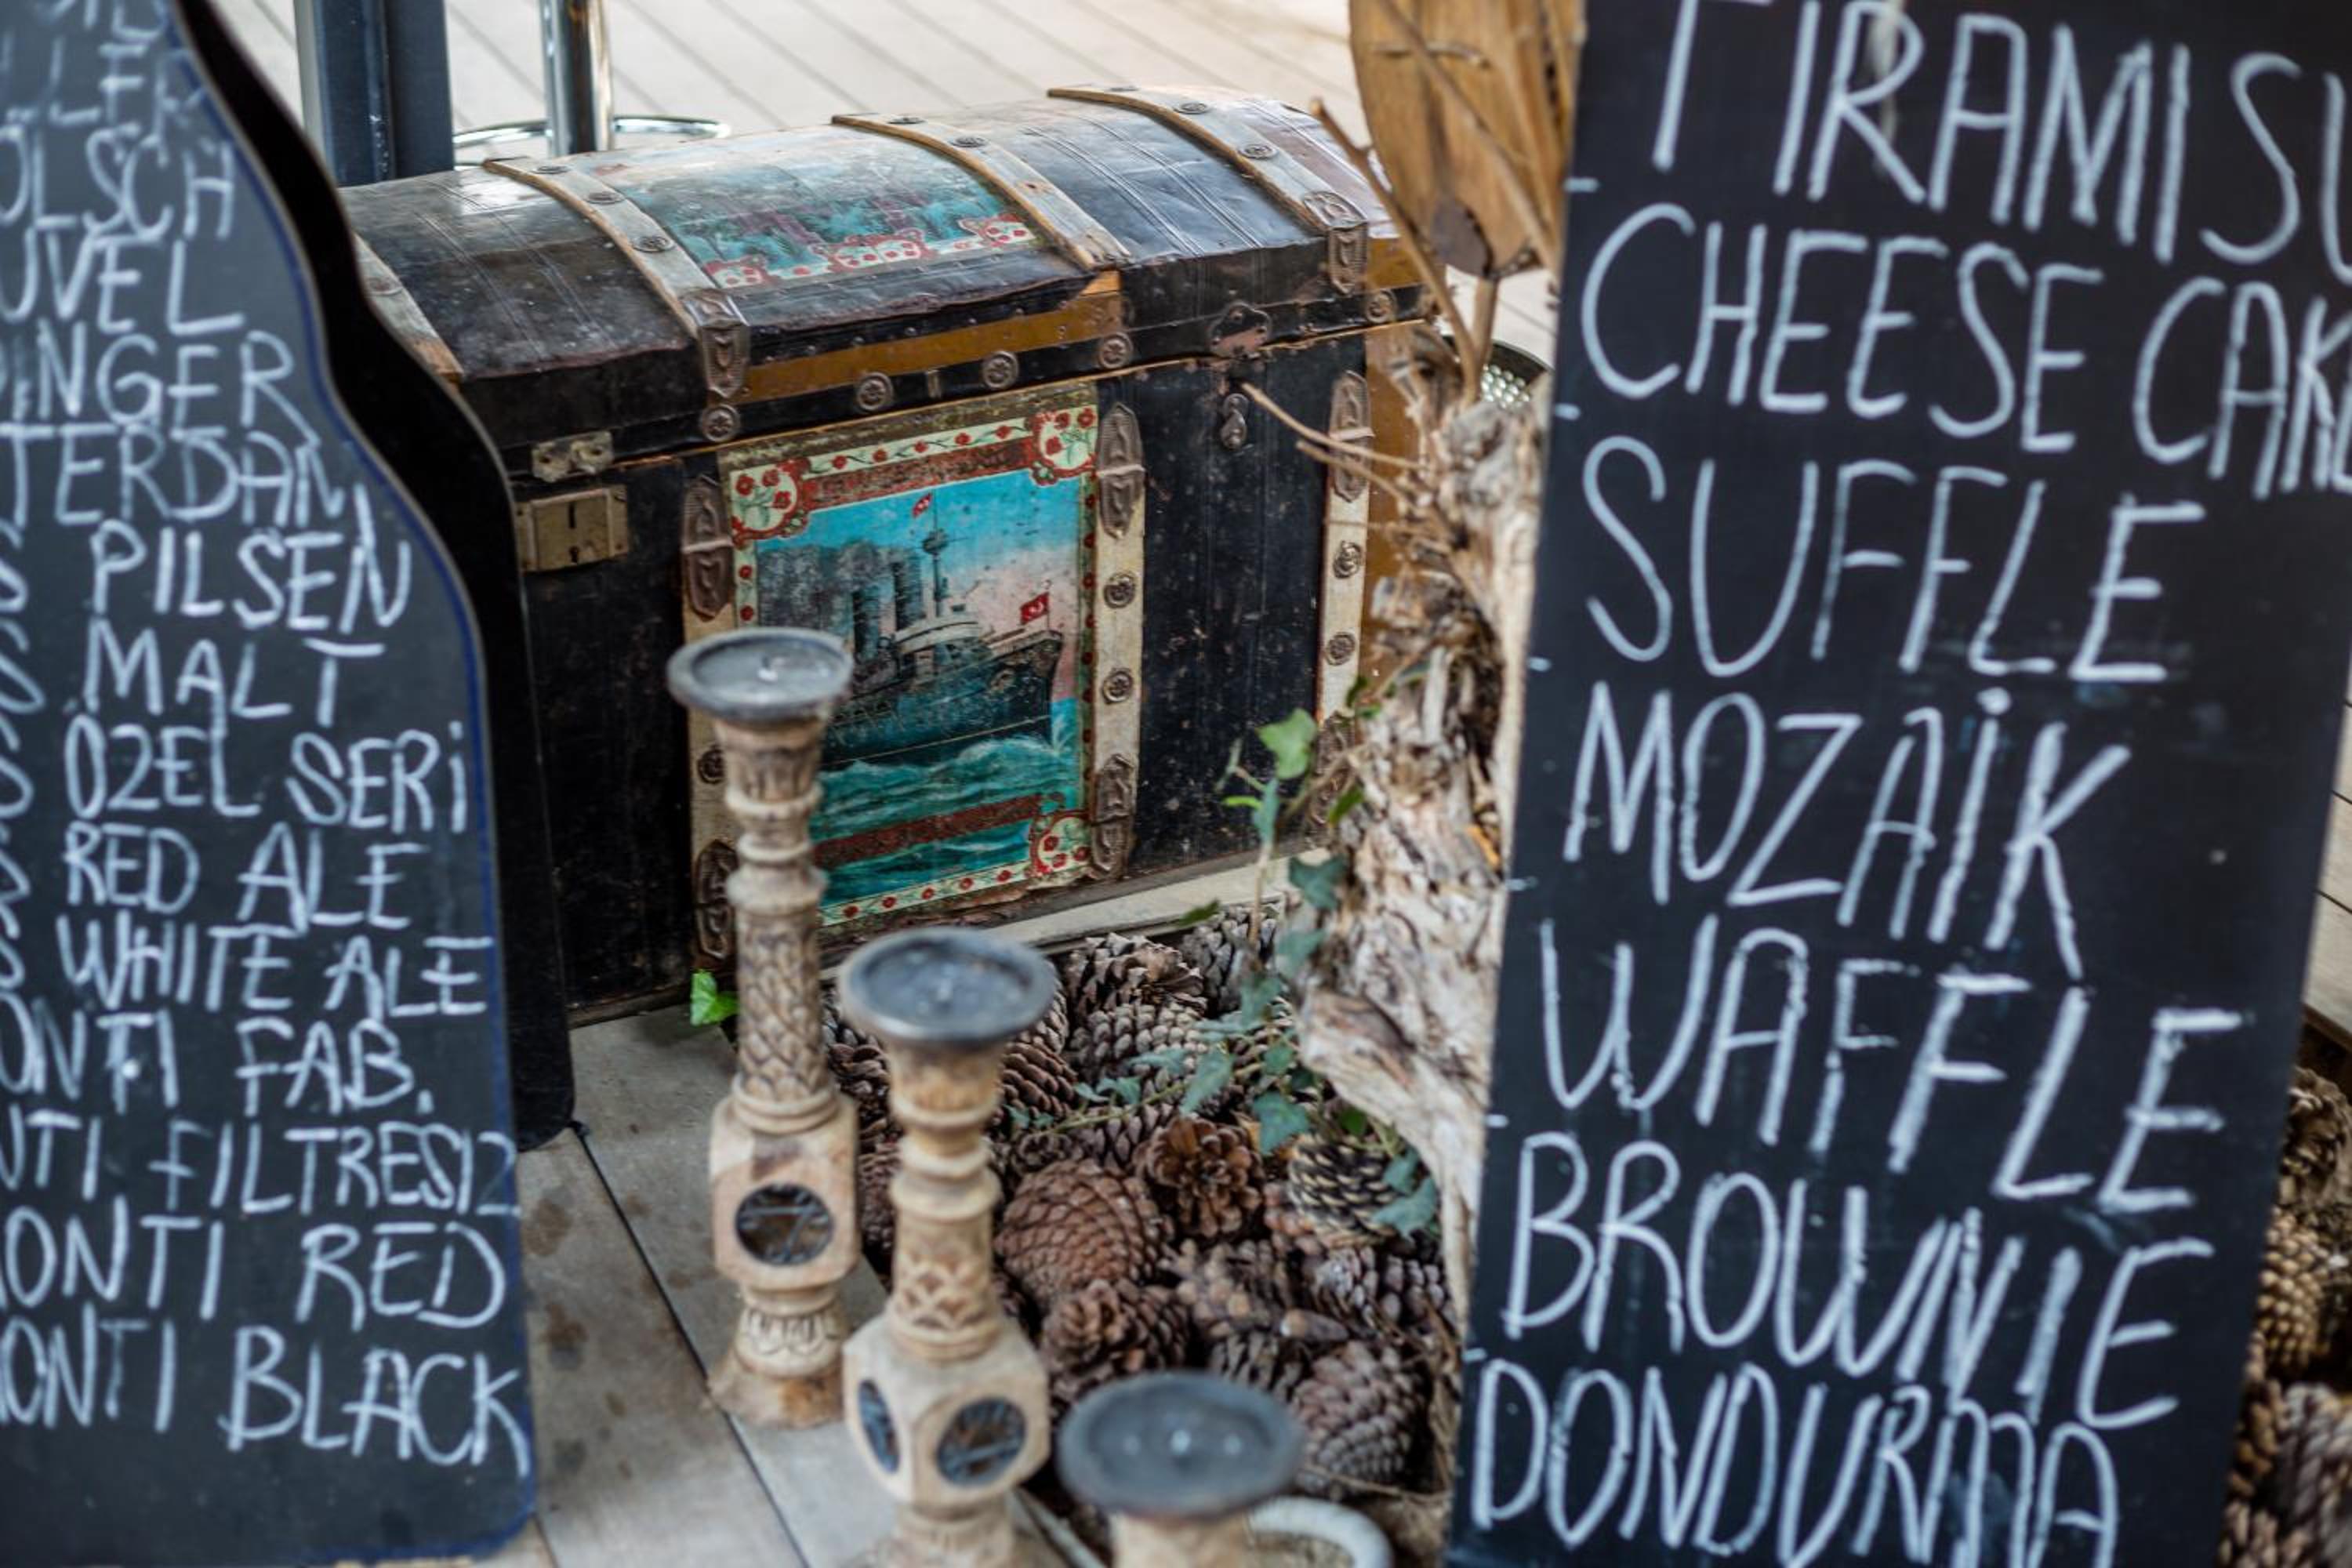 LLER
OLSCH
UVEL
INGER
STERDAM
PILSEN
MALT
ÖZEL SERİ
RED ALE
WHITE ALE
ONTI FAB.
NTI FILTRESIZ
ONTI RED
ONTI BLACK
TIRAMISU
CHEESE CAKE
SUFFLE
MOZAİK
WAFFLE
BROWNIE
DONDURMA